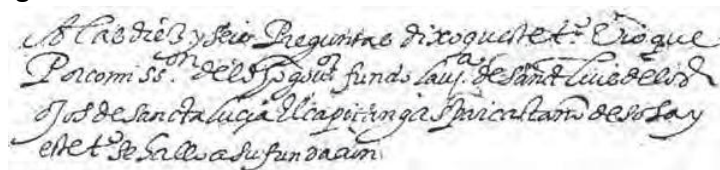 A las diez y seis Preguntas dixo que este tº. vio que
Por comissᵒⁿ. del dho gouᵒʳ fundo la uᵃ. de sanct luis de los
ojos de sancta lucia El capitan gaspar castaño de sosa y
este tº se hallo a su fundacion